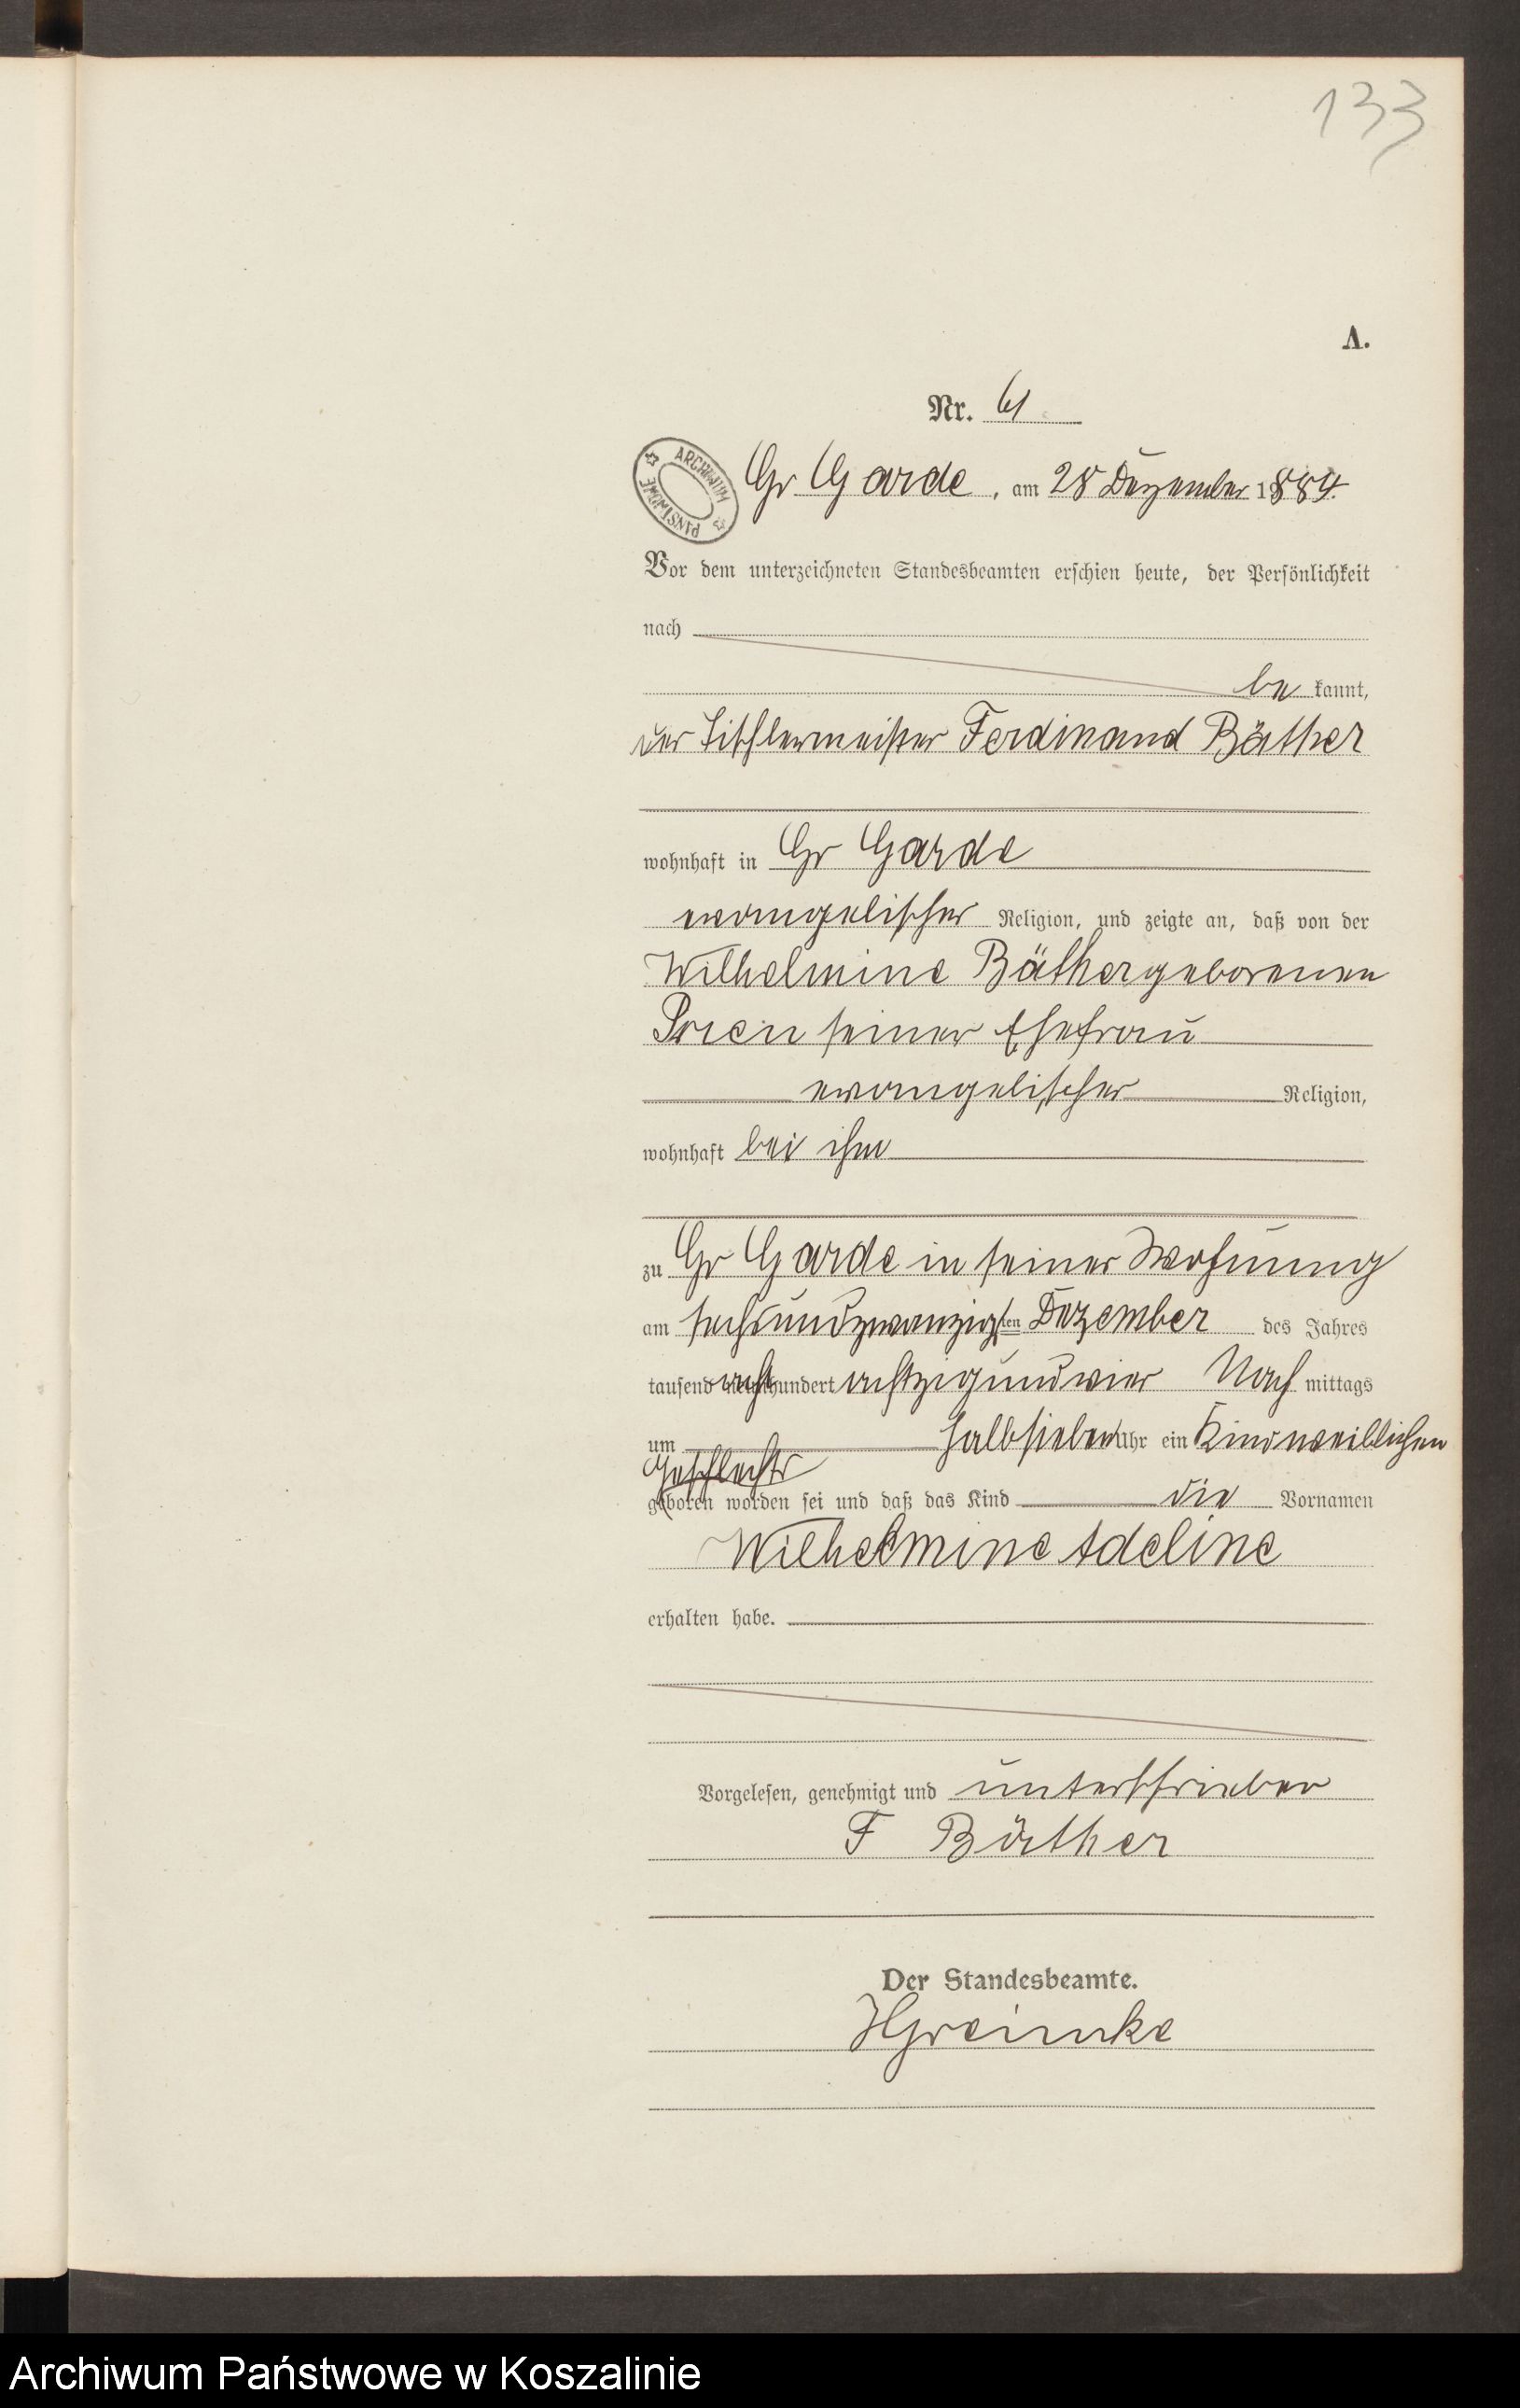 133
A.
Nr. 61
ARCHIWUM PAŃSTWOWE
Gr Garde, am 28 Dezember 1884.
Vor dem unterzeichneten Standesbeamten erschien heute, der Persönlichkeit
nach
be kannt,
der Tischlermeister Ferdinand Bäther
wohnhaft in Gr Garde
evangelischer Religion, und zeigte an, daß von der
Wilhelmine Bäther geborenen
seiner Ehefrau
evangelischer Religion,
wohnhaft bei ihm
zu Gr Garde in seiner Wohnung
am sechsundzwanzigsten Dezember des Jahres
tausend achthundert achtzigundvier Nach mittags
um halbsieben Uhr ein Kind weiblichen
Geschlechts
geboren worden sei und daß das Kind die Vornamen
Wilhelmine Adeline
erhalten habe.
Vorgelesen, genehmigt und unterschrieben
F Bäther
Der Standesbeamte.
Archiwum Państwowe w Koszalinie